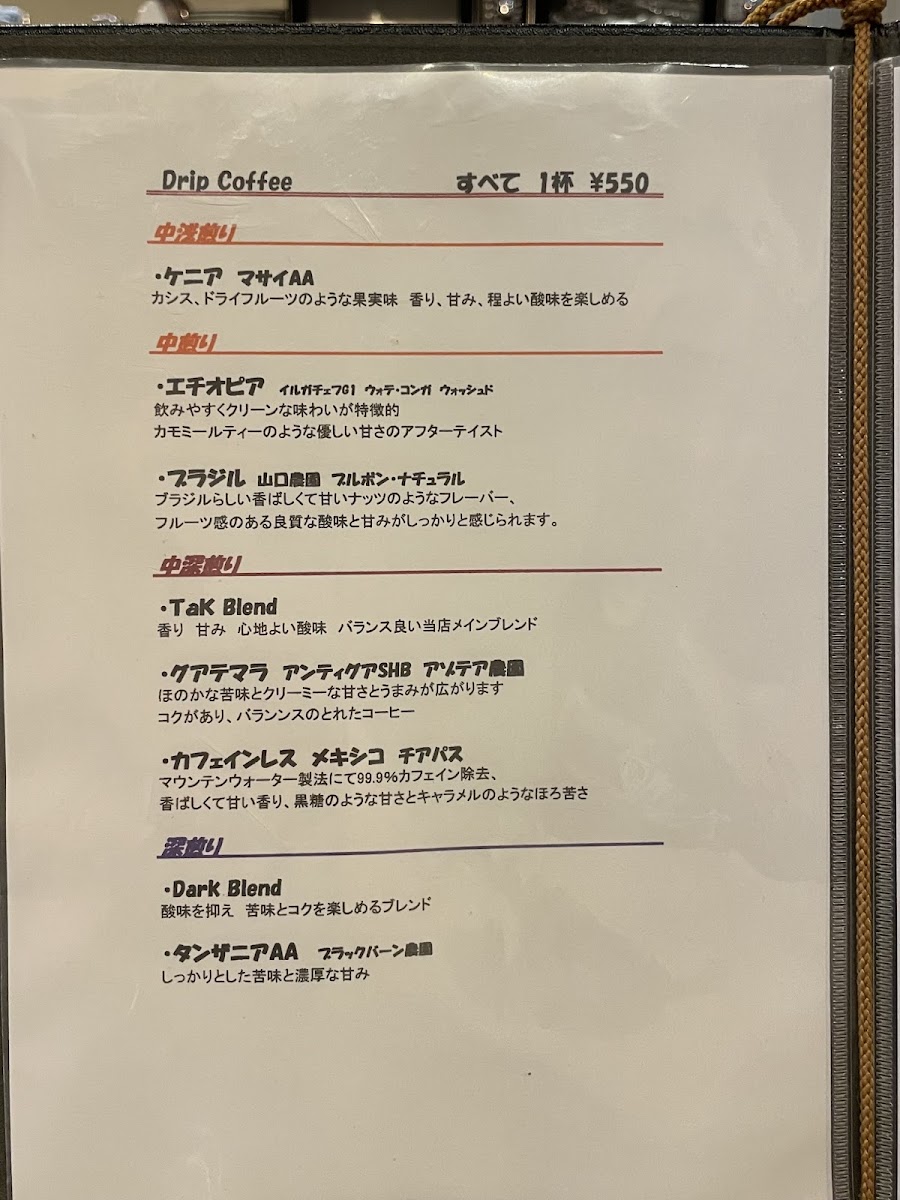 Drip Coffee すべて 1杯 ¥550
中浅煎り
・ケニア マサイAA
カシス、ドライフルーツのような果実味 香り、甘み、程よい酸味を楽しめる
中煎り
・エチオピア イルガチェフG1 ウォテ・コンガ ウォッシュド
飲みやすくクリーンな味わいが特徴的
カモミールティーのような優しい甘さのアフターテイスト
・ブラジル 山口農園 ブルボン・ナチュラル
ブラジルらしい香ばしくて甘いナッツのようなフレーバー、
フルーツ感のある良質な酸味と甘みがしっかりと感じられます。
中深煎り
・TaK Blend
香り 甘み 心地よい酸味 バランス良い当店メインブレンド
・グアテマラ アンティグアSHB アゾテア農園
ほのかな苦味とクリーミーな甘さとうまみが広がります
コクがあり、バランンスのとれたコーヒー
・カフェインレス メキシコ チアパス
マウンテンウォーター製法にて99.9%カフェイン除去、
香ばしくて甘い香り、黒糖のような甘さとキャラメルのようなほろ苦さ
深煎り
・Dark Blend
酸味を抑え 苦味とコクを楽しめるブレンド
・タンザニアAA ブラックバーン農園
しっかりとした苦味と濃厚な甘み